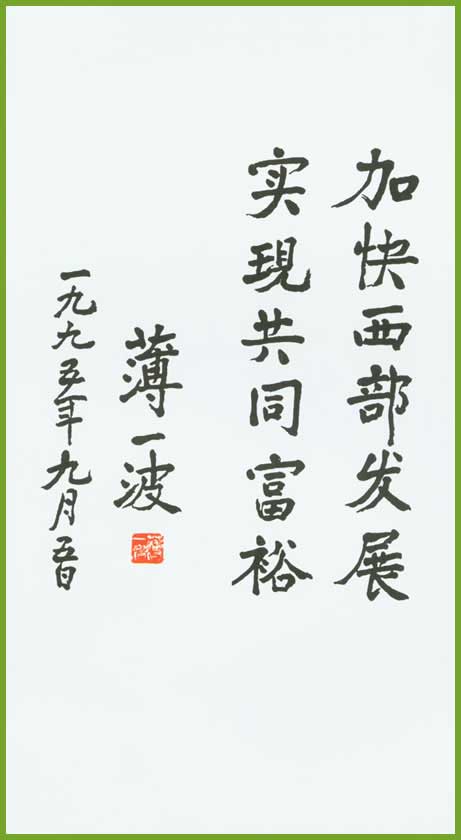 加快西部发展
实现共同富裕
薄一波
一九九五年九月五日